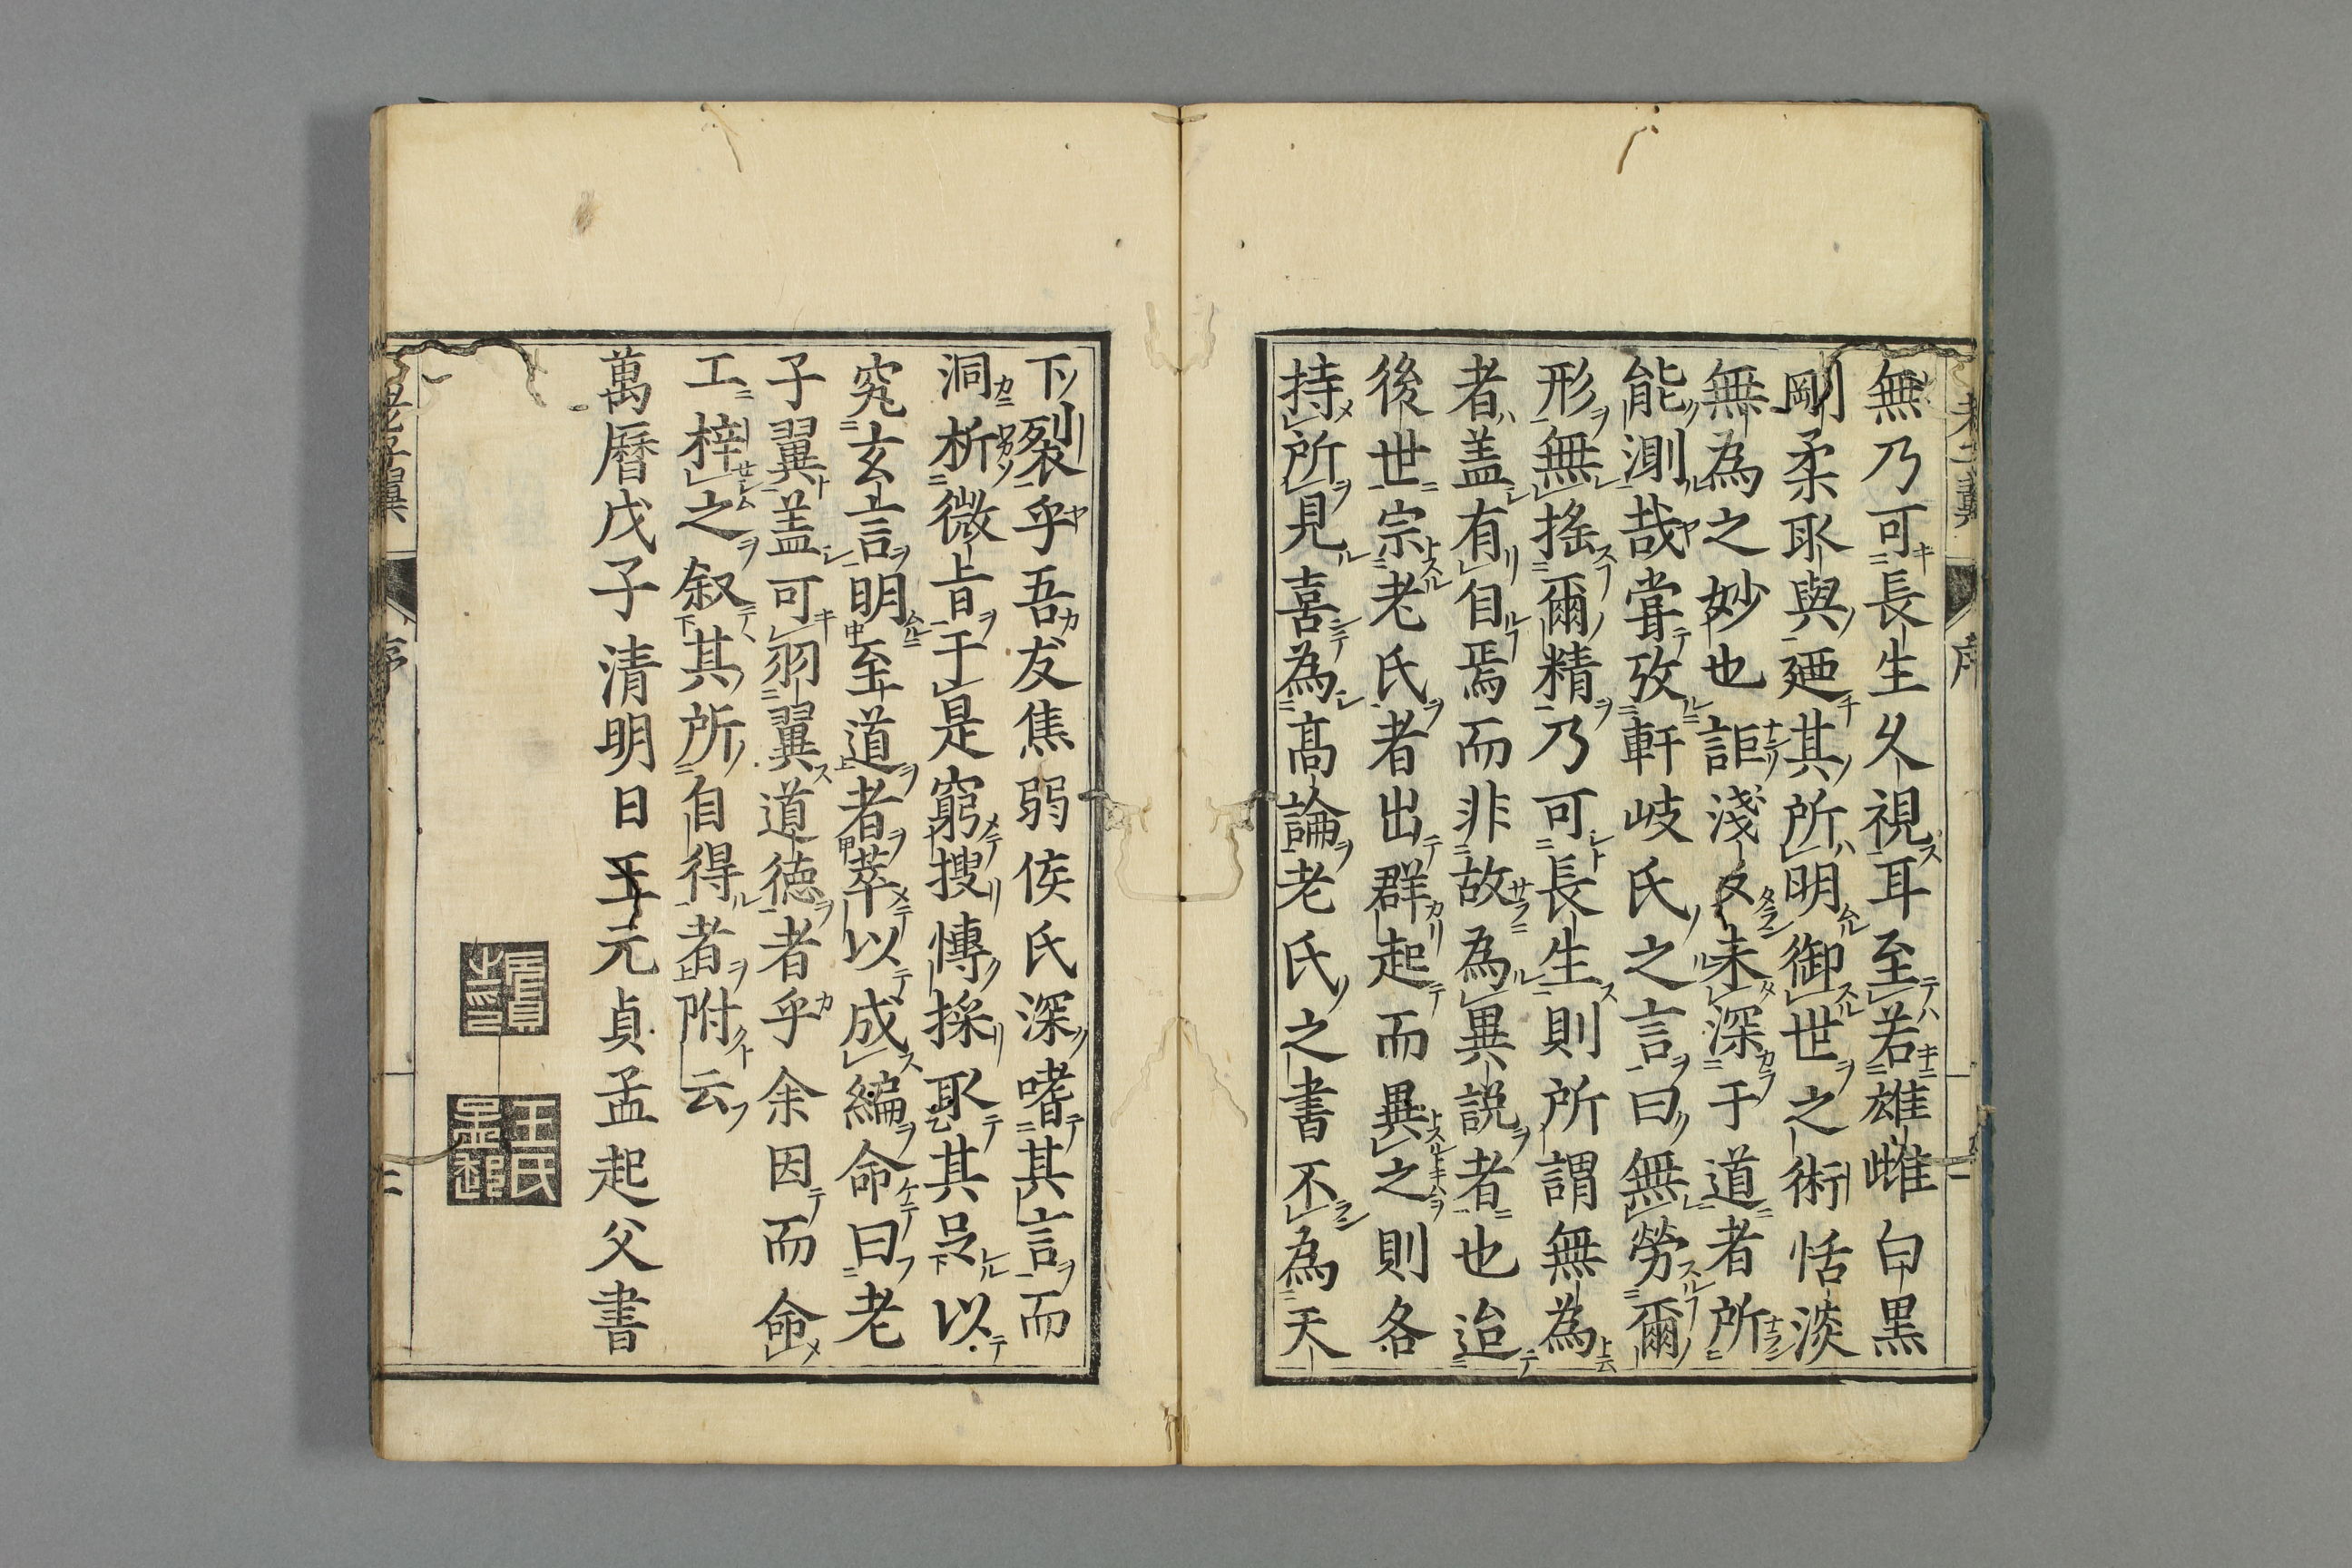 無乃可長生久視耳至若雄雌白黒
剛柔取與廼其所明御世之術恬淡
無為之妙也詎淺々未深于道者所
能測哉甞攷軒岐氏之言曰無勞爾
形無揺爾精乃可長生則所謂無為
者盖有自焉而非故為異説者也迨
後世宗老氏者出群起而異之則各
持所見喜為髙論老氏之書不為天
下裂乎吾友焦弱侯氏深嗜其言而
洞析微旨于是窮搜愽採取其足以
究玄言明至道者萃以成編命曰老
子翼盖可羽翼道徳者乎余因而命
工梓之叙其所自得者附云
萬曆戊子清明日王元貞孟起父書
王氏孟起
老子翼
序
二